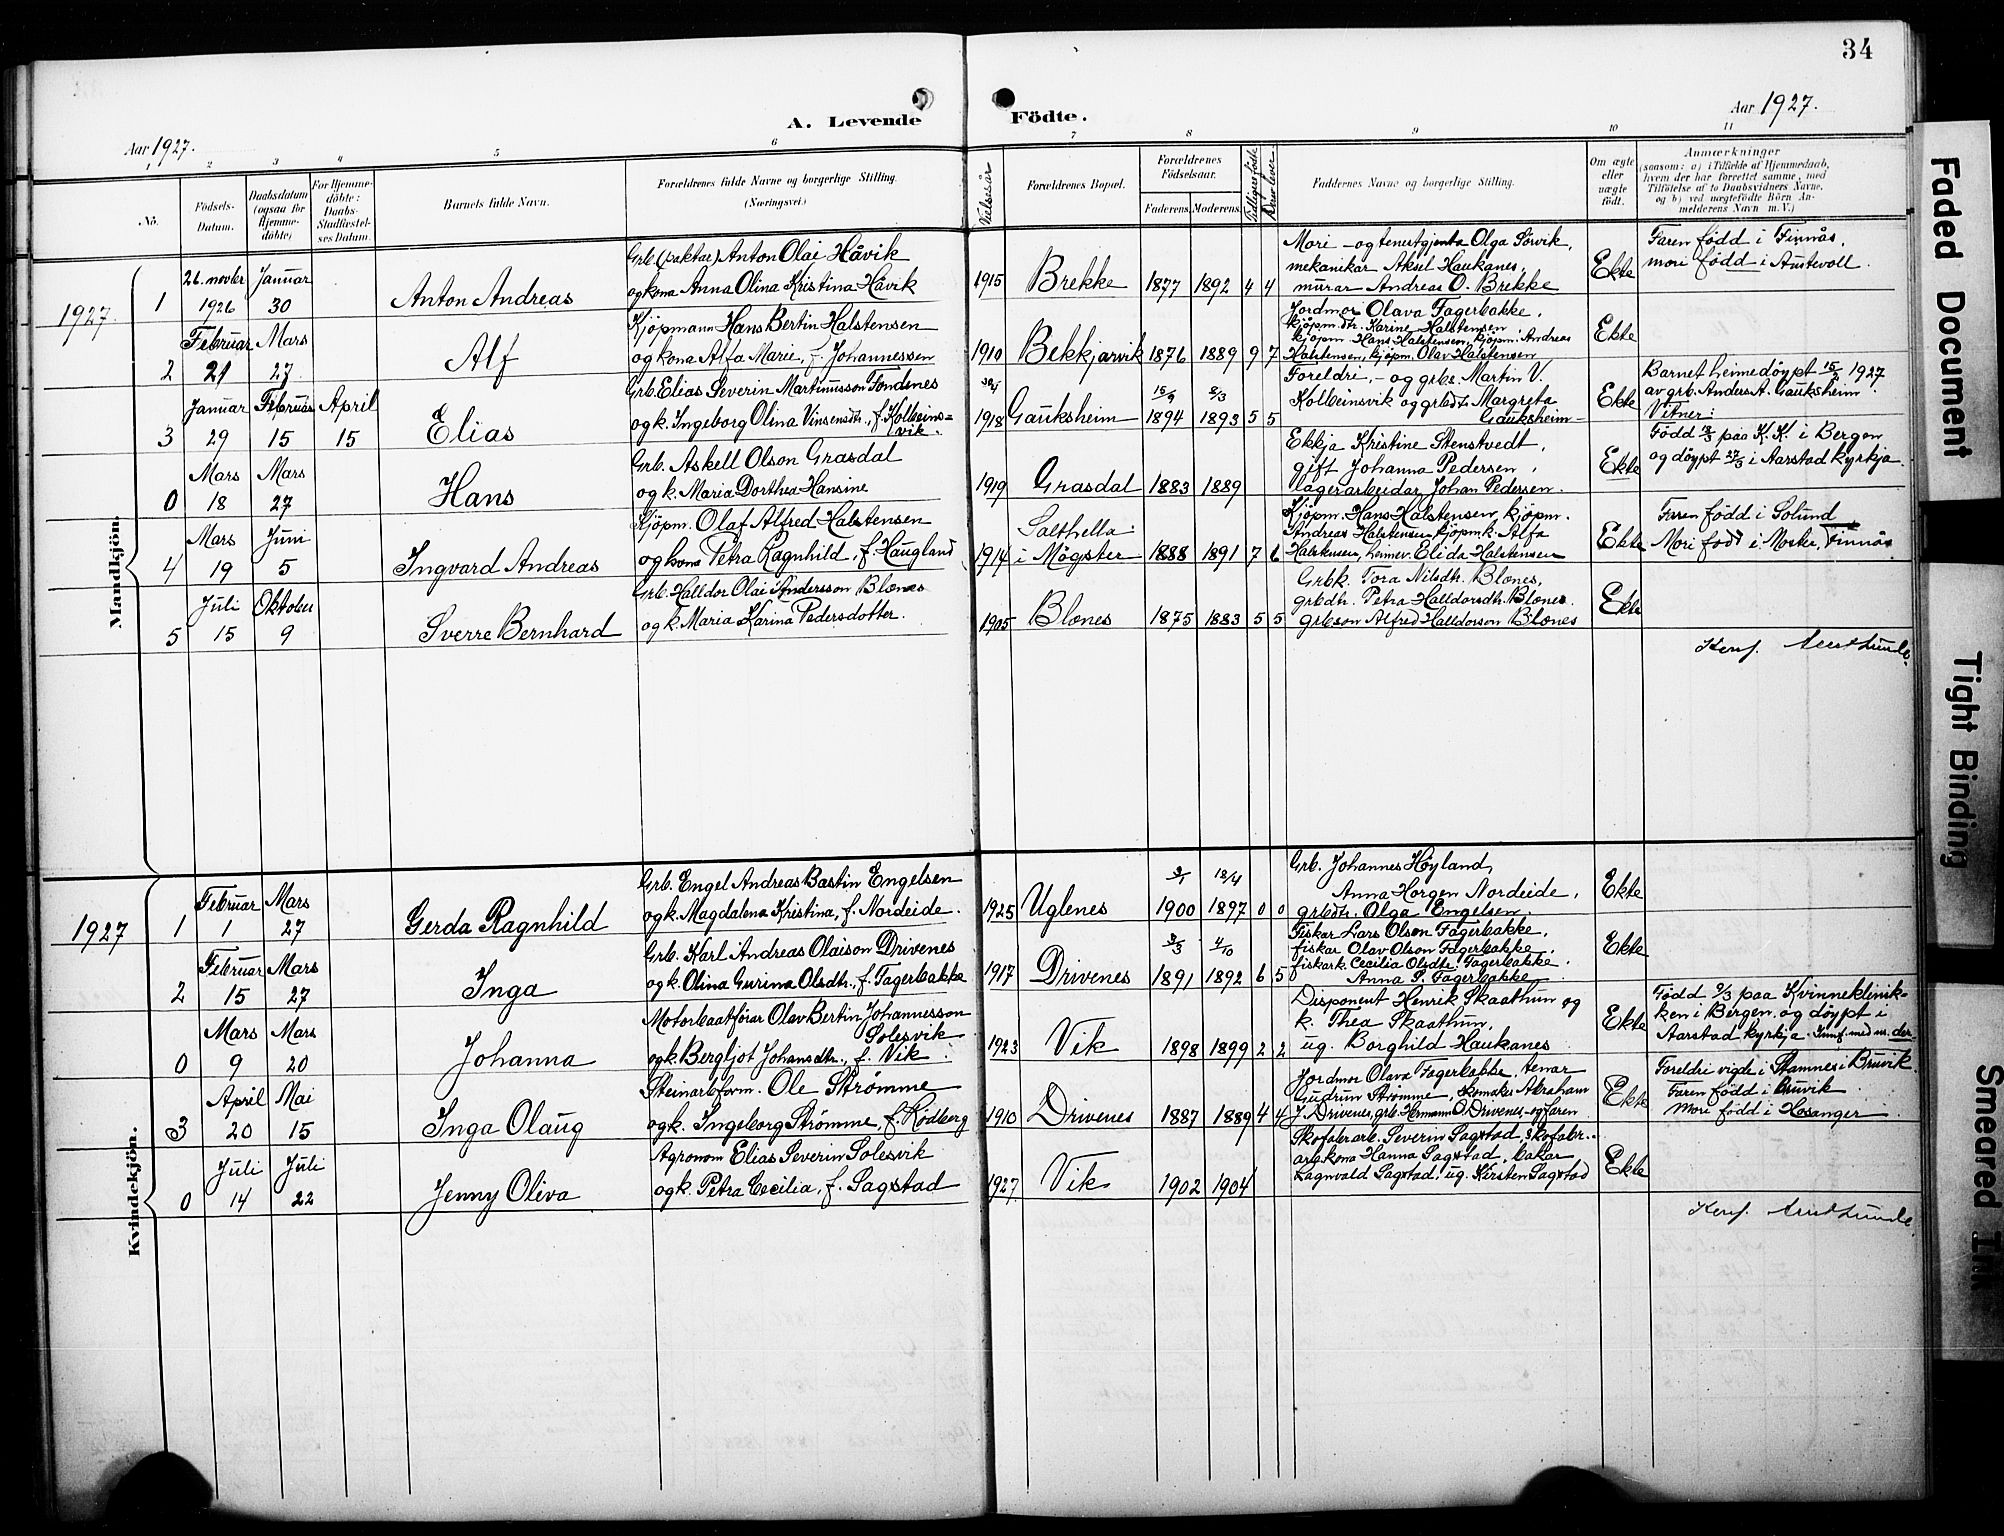 34
Aar 1927.
A. Levende
Födte.
Aar 1927.
1 2 3 4 5 6 7 8 9 10 11
No.
Födsels-
Datum.
Daabsdatum
(ogsaa for
Hjemme-
döbte)
For Hjemme-
döbte:
Daabs-
Stadfæstel-
ses Datum.
Barnets fulde Navn.
Forældrenes fulde Navne og borgerlige Stilling.
(Næringsvei.)
Vielsesår
Forældrenes Bopæl.
Forældrenes
Födselsaar.
Faderens. Moderens.
Tidligere födte
Derav lever
Faddernes Navne og borgerlige Stilling.
Om ægte
eller
uægte
födt.
Anmærkninger
(saasom: a) i Tilfælde af Hjemmedaab,
hvem der har forrettet samme, med
Tilföielse af to Daabsvidners Navne,
og b) ved uægtefödte Börn An-
melderens Navn m. V.)
Mandkjön.
1927.
1
26. novbr
1926
Januar
30
Anton Andreas
Grb. (paktar) Anton Olai Håvik
og kona Anna Olina Kristina Håvik
1915
Brekke
1877 1892 4 4
Mori - og tenestgjenta Olga Sørvik,
mekanikar Aksel Haukanes,
murar Andreas O. Brekke
Ekte
Faren född i Finnås,
mori född i Austevoll.
2
Februar
21
Mars
27
Alf
Kjöpmann Hans Bertin Halstensen
og kona Alfa Marie, f. Johannessen
1910
Bekkjarvik
1876 1889 9 7
Jordmor Olava Fagerbakke,
kjöpm.dtr. Karine Halstensen
kjöpm Hans Halstensen, kjöpm. Andreas
Halstensen, kjöpm. Olav Halstensen
Ekte
3
Januar
29
Februar
15
April
15
Elias
Grb. Elias Severin Martinusson Fondsnes
og k. Ingeborg Olina Vinsensdtr., f. Kolbeins-
vik.
1918
Gauksheim
15/9 1894 2/3 1893 5 5
Foreldri, - og grbs. Martin V.
Kolbeinsvik og grbdtr. Margreta
Gauksheim -
Ekte
Barnet heimedöypt 15/2 1927
av grb. Anders A. Gauksheim
Vitner:
0
Mars
18
Mars
27
Hans
Grb. Askell Olson Grasdal
og k. Maria Dorthea Hansine
1919
Grasdal
1883 1889
Ekkja Kristine Stenstvedt,
gift Johanna Pedersen,
lagerarbeidar Johan Pedersen.
Ekte
Född 18/3 paa K. K. i Bergen
og döypt 27/3 i Aarstad kyrkja.
4
Mars
19
Juni
5
Ingvard Andreas
Kjöpm. Olaf Alfred Halstensen
og kona Petra Ragnhild, f. Haugland
1914
Salthella
i Mögster
1888 1891 7 6
Kjöpm. Hans Halstensen, kjöpm.
Andreas Halstensen, kjöpm.k. Alfa
Halstensen, heimev. Elida Halstensen
Ekte
Faren född i Solund
Mori född i Moster, Finnås
5
Juli
15
Oktober
9
Sverre Bernhard
Grb. Halldor Olai Andersson Blænes
og k. Maria Karina Pedersdotter.
1905
Blænes
1875 1883 5 5
Grbk. Tora Nilsdtr. Blænes,
grbdtr. Petra Halldorsdtr. Blænes.
grbson Alfred Halldorson Blænes
Ekte
Kenf. Arnt Lunde.
Kvindekjön.
1927
1
Februar
1
Mars
27
Gerda Ragnhild
Grb. Engel Andreas Bastin Engelsen
og k. Magdalena Kristina, f. Nordeide.
1925
Uglenes
1900 18/4 1897 0 0
Grb. Johannes Höyland,
Anna Horgen Nordeide,
grbdtr. Olga Engelsen.
Ekte
2
Februar
15
Mars
27
Inga
Grb. Karl Andreas Olaison Drivenes
og k. Olina Gurina Olsdtr., f. Fagerbakke
1917
Drivenes
1891 4/10 1892 6 5
Fiskar Lars Olson Fagerbakke,
fiskar Olav Olson Fagerbakke,
fiskark. Cecilia Olsdtr. Fagerbakke.
Anna P. Fagerbakke
Ekte
0
Mars
9
Mars
20
Johanna
Motorbaatförar Olav Bertin Johannesson
Solesvik
og k. Bergljot Johansdtr., f. Vik.
1923
Vik
1898 1899 2 2
Disponent Henrik Skaathun og
k. Thea Skaathun,
ug. Borghild Haukanes.
Ekte
Född 9/3 paa Kvinneklinik-
ken i Bergen og döypt i
Aarstad kyrkja.
3
April
20
Mai
15
Inga Olaug
Steinarb.form. Ole Strømme
og k. Ingeborg Strømme, f. Rödberg
1910
Drivenes
1887 1889 4 4
Jordmor Olava Fagerbakke, tenar
Gudrun Strömme, skomaker Abraham
J. Drivenes, grb. Hermann O. Drivenes, og faren
Ekte
Foreldri vigde i Stamnes i Bruvik.
Faren född i Bruvik
Mori född i Hosanger
0
Juli
14
Juli
22
Jenny Oliva
Agronom Elias Severin Solesvik
og k. Petra Cecilia, f. Sagstad
1927
Vik
1902 1904
Skofabr.arb. Severin Sagstad, skofabr.-
arb.kona Hanna Sagstad, baker
Lagnvald Sagstad, ug. Kirsten Sagstad
Ekte
Kenf. Arnt Lunde
Faded Document
Tight Binding
Smeared Ink